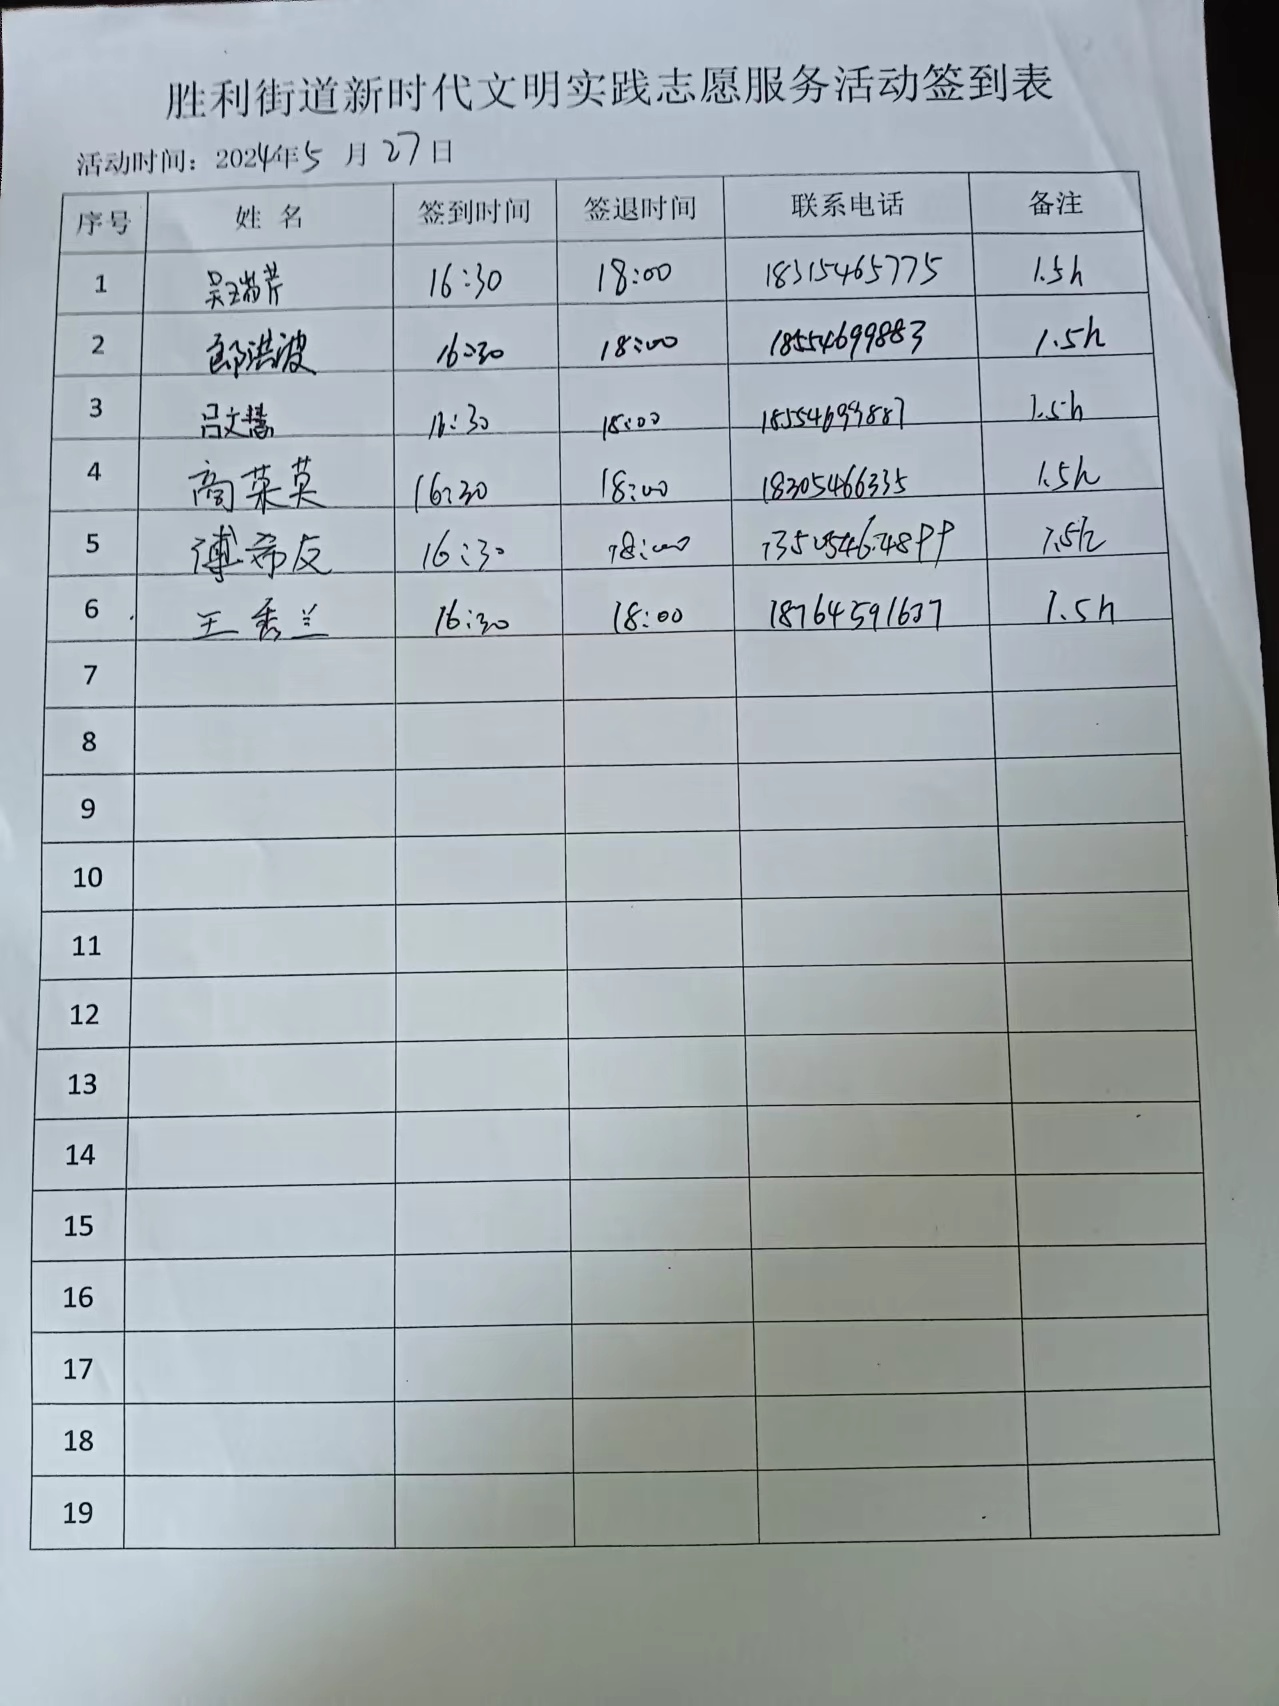 胜利街道新时代文明实践志愿服务活动签到表
活动时间：2024年5月27日
序号 姓名 签到时间 签退时间 联系电话 备注
1 吴瑞芹 16:30 18:00 18315465775 1.5h
2 郎洪波 16:30 18:00 18554699883 1.5h
3 吕文慧 16:30 18:00 18554699887 1.5h
4 商菜英 16:30 18:00 18305466335 1.5h
5 傅希友 16:30 18:00 1.5h
6 王秀兰 16:30 18:00 18764591637 1.5h
7
8
9
10
11
12
13
14
15
16
17
18
19